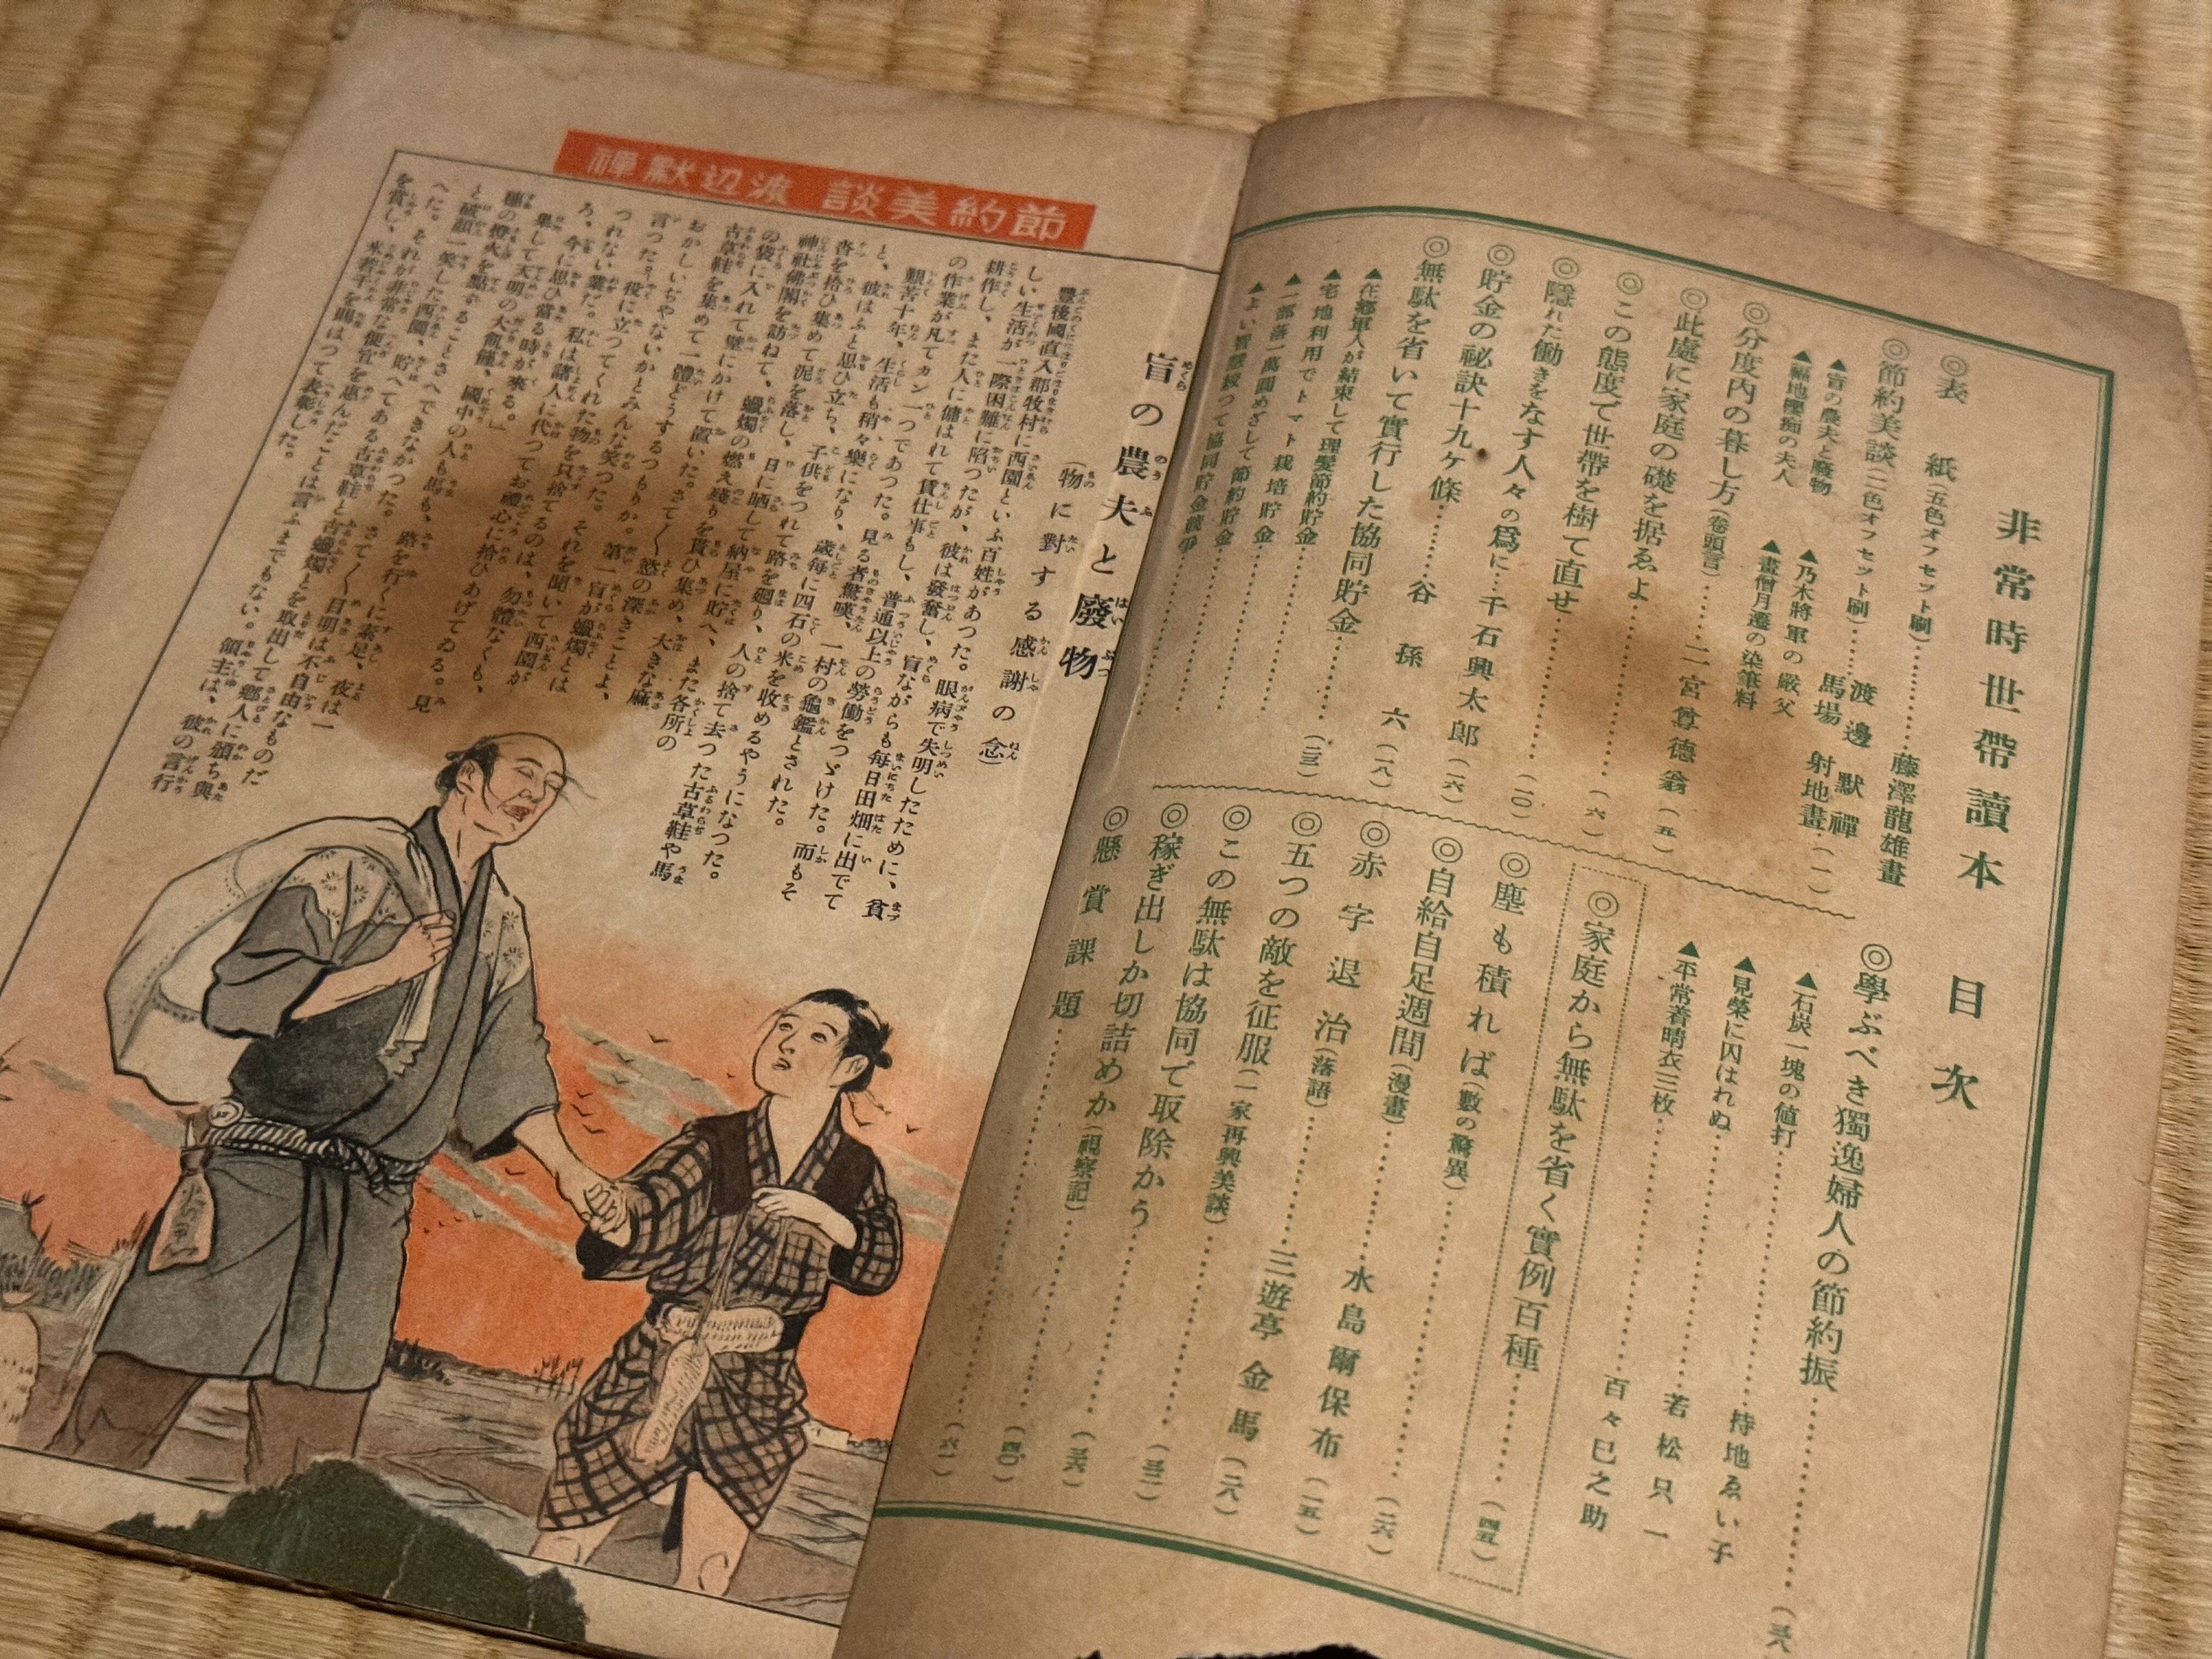 非常時世帶讀本 目次
◎表紙(五色オフセット刷)……藤澤龍雄畫
◎節約美談(二色オフセット刷)……渡邊默禪 馬場射地畫(一)
▲盲の農夫と廢物
▲福地櫻痴の夫人
▲乃木將軍の嚴父
▲畫僧月遷の染筆料
◎分度內の暮し方(卷頭言)……二宮尊德翁(五)
◎此處に家庭の礎を据ゑよ……(六)
◎この態度で世帶を樹て直せ……(一〇)
◎隱れた働きをなす人々の爲に…千石興太郎(一六)
◎貯金の祕訣十九ケ條……谷孫六(一八)
◎無駄を省いて實行した協同貯金……(二三)
▲在鄕軍人が結束して理髮節約貯金……
▲宅地利用でトマト栽培貯金……
▲一部落一萬圓めざして節約貯金……
▲よい智慧絞つて協同貯金競爭……
◎學ぶべき獨逸婦人の節約振……(三八)
▲石炭一塊の値打……持地ゑい子
▲見榮に囚はれぬ……若松只一
▲平常着晴衣三枚……百々巳之助
◎家庭から無駄を省く實例百種……(四五)
◎塵も積れば(數の驚異)……(二六)
◎自給自足週間(漫畫)……水島爾保布(一五)
◎赤字退治(落語)……三遊亭金馬(二八)
◎五つの敵を征服(一家再興美談)……(三二)
◎この無駄は協同で取除かう……(三六)
◎稼ぎ出しか切詰めか(視察記)……(四〇)
◎懸賞課題……(六一)
節約美談 渡辺默禪
盲の農夫と廢物
(物に對する感謝の念)
豐後國直入郡牧村に西園といふ百姓があつた。眼病で失明したために、貧
しい生活が一際困難に陷つたが、彼は發奮し、盲ながらも每日田畑に出でて
耕作し、また人に傭はれて賃仕事もし、普通以上の勞働をつゞけた。而もそ
の作業が凡てカン一つであつた。見る者驚嘆、一村の龜鑑とされた。
艱苦十年、生活も稍々樂になり、歲每に四石の米を收めるやうになつた。
と、彼はふと思ひ立ち、子供をつれて路を廻り、人の捨て去つた古草鞋や馬
沓を拾ひ集めて泥を落し、日に晒して納屋に貯へ、また各所の
神社佛閣を訪ねて、蠟燭の燃え殘りを貰ひ集め、大きな麻
の袋に入れて壁にかけて置いた。さて〱慾の深きことよ、
古草鞋を集めて一體どうするつもりか。第一盲が蠟燭とは
おかしいぢやないかとみんな笑つた。それを聞いて西園が
言つた。「役に立つてくれた物を只捨てるのは、勿體なくも、
つれない業だ。私は諸人に代つてお禮心に拾ひあげてゐる。見
ろ、今に思ひ當る時が來る。」
果して天明の大飢饉、國中の人も馬も、路を行くに素足、夜は一
穗の燈火を點することさへできなかつた。さて〱目明は不自由なものだ
と破顏一笑した西園、貯へてある古草鞋と古蠟燭とを取出して鄕人に頒ち與
へた。それが非常な便宜を惠んだことは言ふまでもない。領主は、彼の言行
を賞し、米若干を賜はつて表彰した。